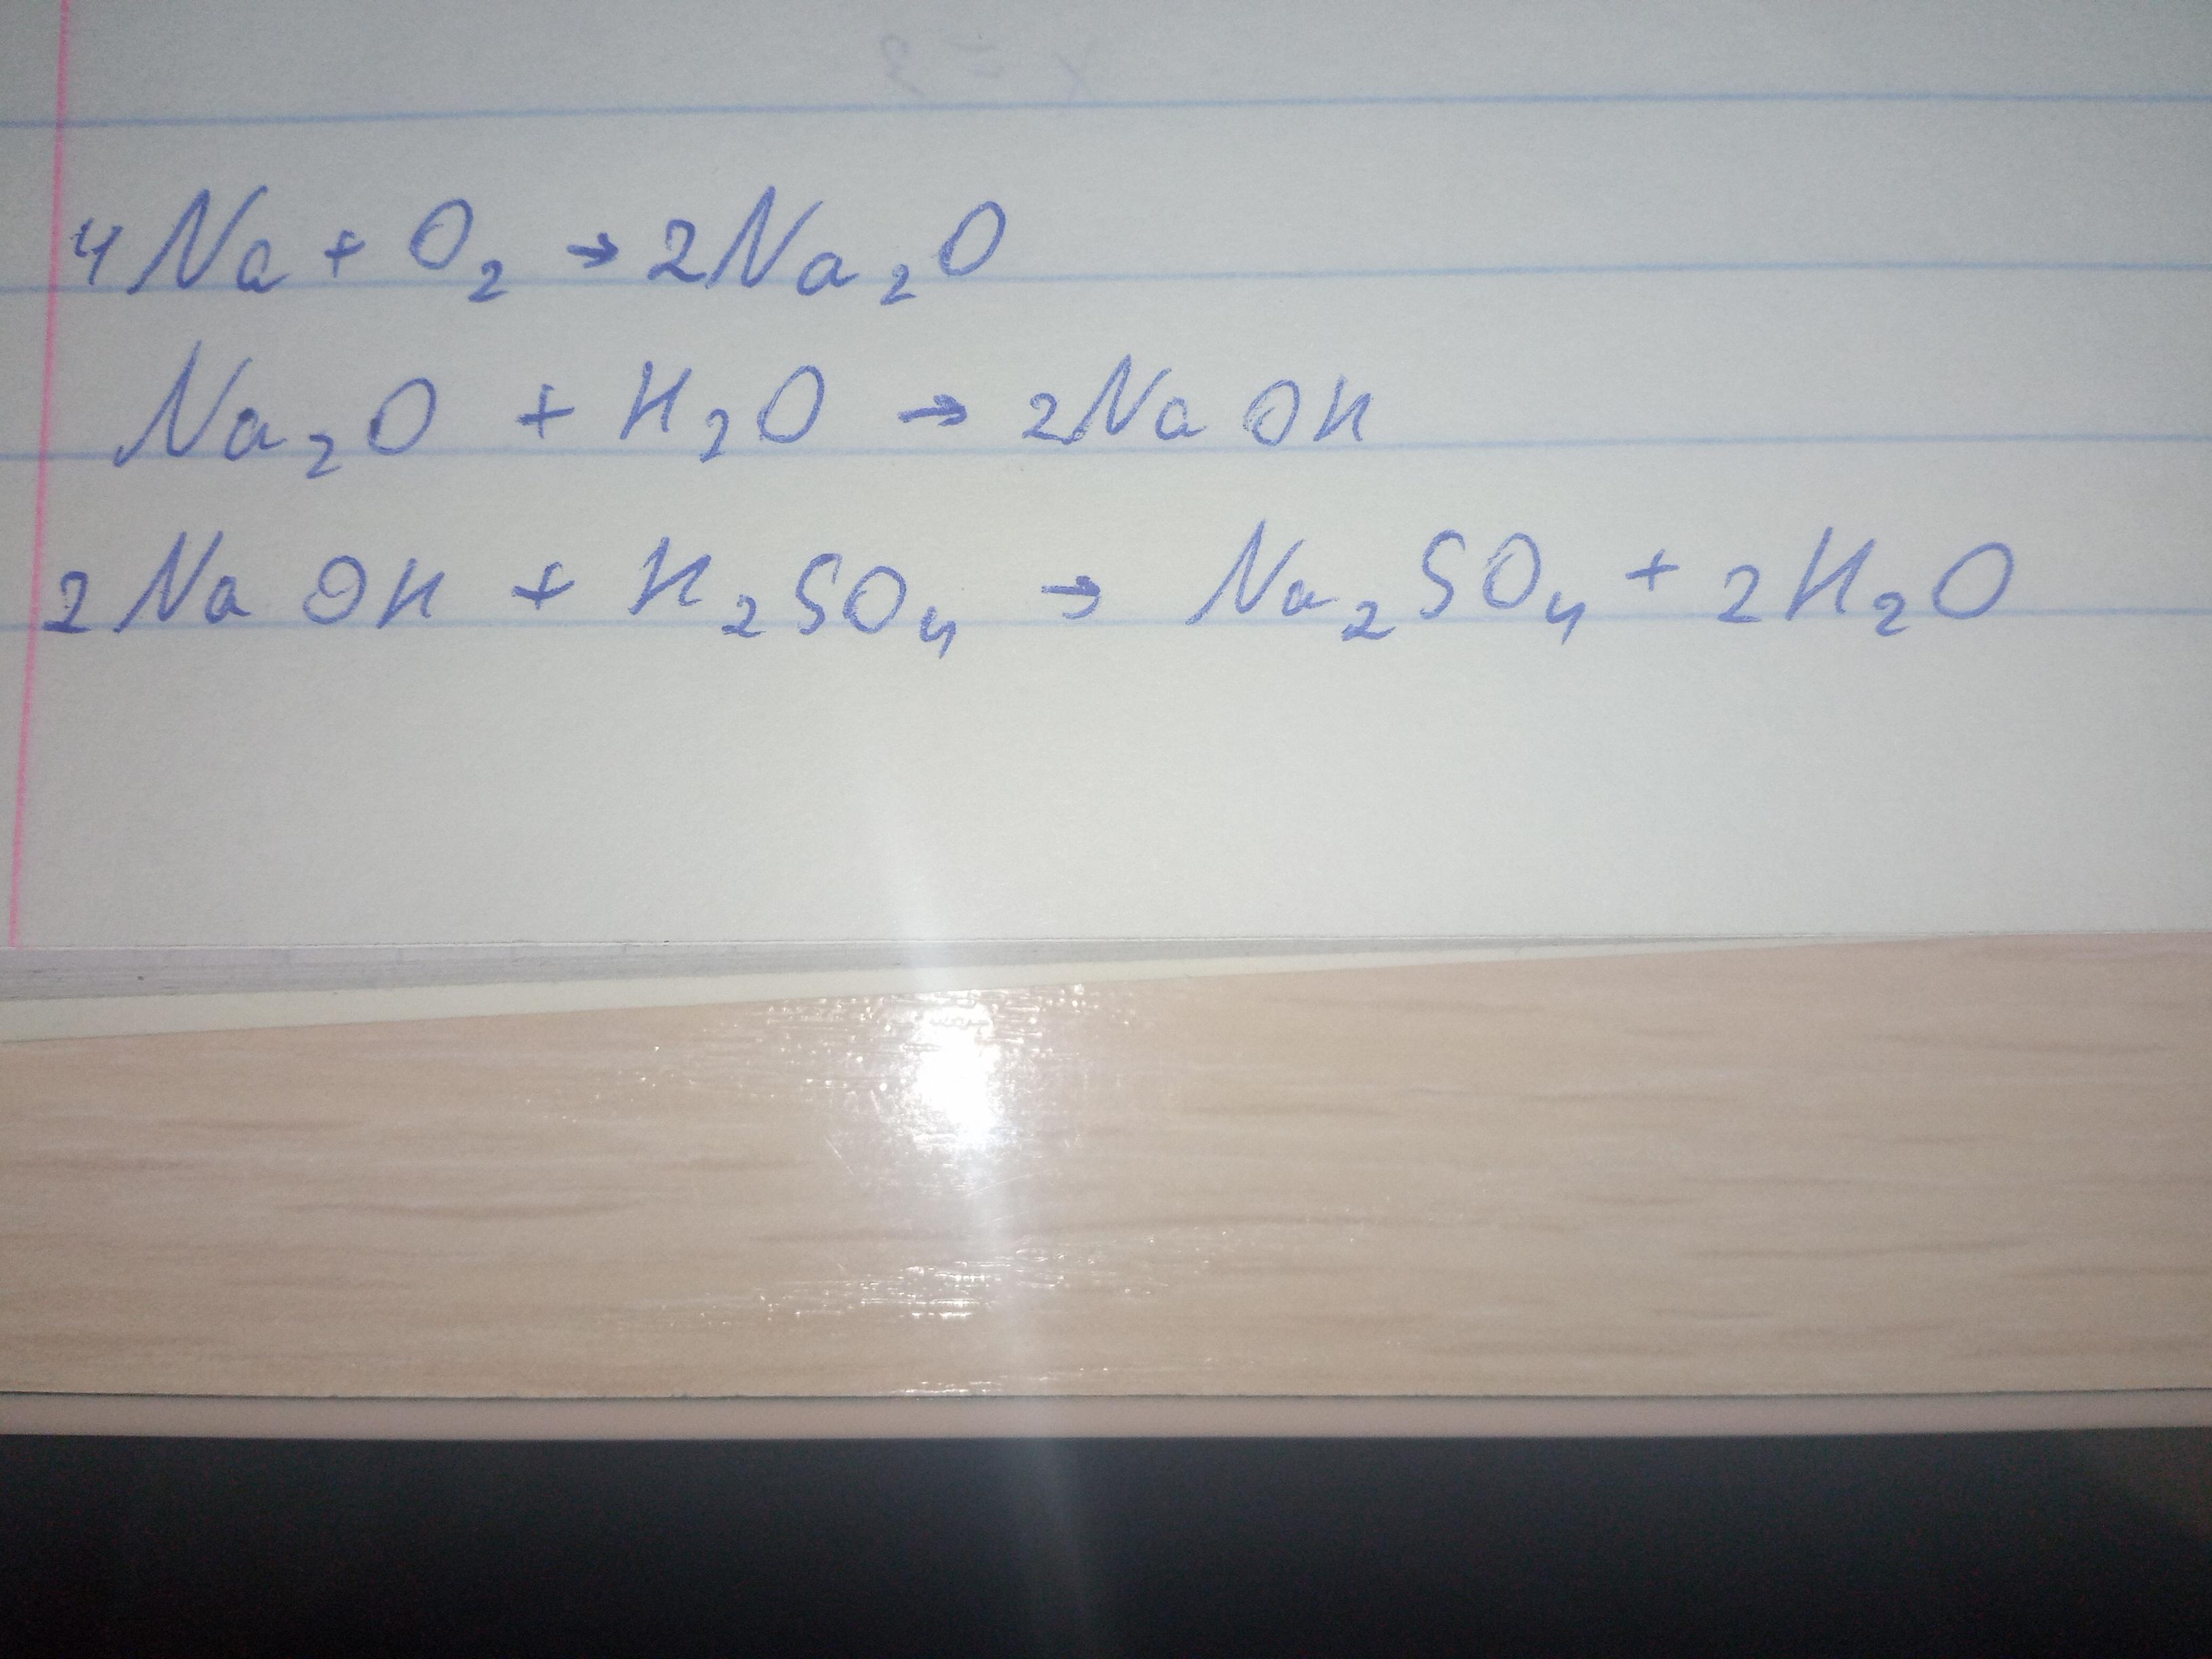 4Na + O₂ → 2Na₂O
Na₂O + H₂O → 2NaOH
2NaOH + H₂SO₄ → Na₂SO₄ + 2H₂O